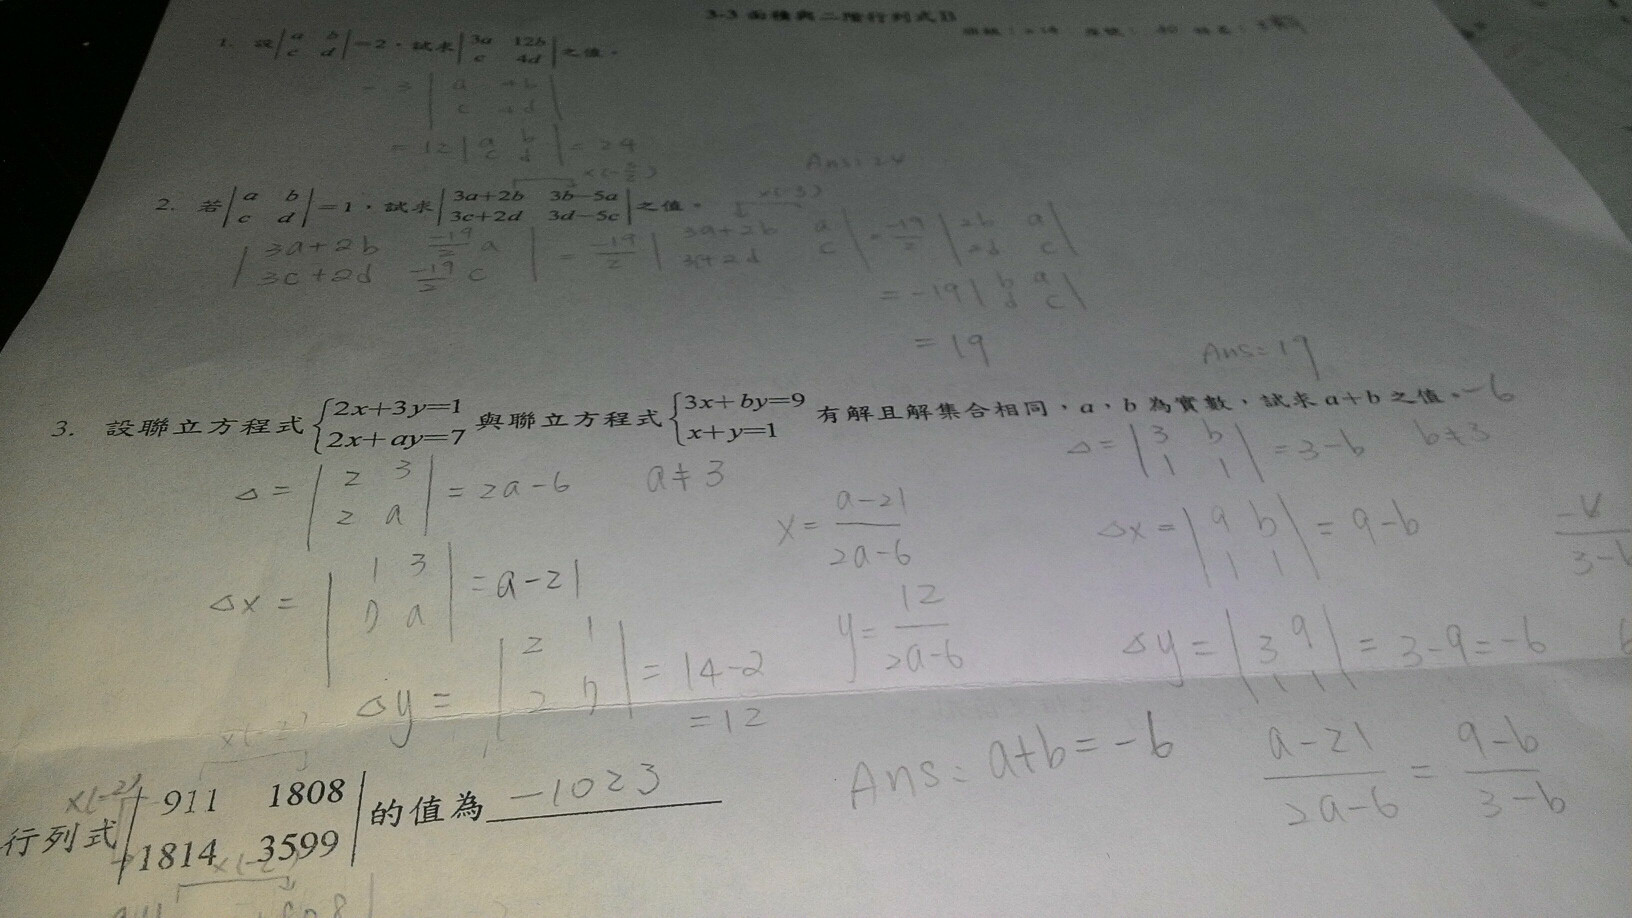 3-3 面積與二階行列式B
1. 設|a b; c d|=2，試求|3a 12b; c 4d|之值。
= 12|a b; c d| = 24
Ans: 24
2. 若|a b; c d|=1，試求|3a+2b 3b-5a; 3c+2d 3d-5c|之值。
|3a+2b -19/2 a; 3c+2d -19/2 c| = -19/2 |3a+2b a; 3c+2d c| = -19/2 |2b a; 2d c|
= -19|b a; d c|
= 19
Ans=19
3. 設聯立方程式{2x+3y=1; 2x+ay=7 與聯立方程式{3x+by=9; x+y=1 有解且解集合相同，a，b為實數，試求a+b之值。-6
△=|2 3; 2 a|=2a-6 a≠3
△=|3 b; 1 1|=3-b b≠3
△x=|1 3; 7 a|=a-21
x=(a-21)/(2a-6)
△x=|9 b; 1 1|=9-b
△y=|2 1; 2 7|=14-2
=12
y=12/(2a-6)
△y=|3 9; 1 1|=3-9=-6
Ans: a+b=-6
(a-21)/(2a-6)=(9-b)/(3-b)
×(-2)
×(-2)
行列式|911 1808; 1814 3599|的值為 -1023
×(-2)